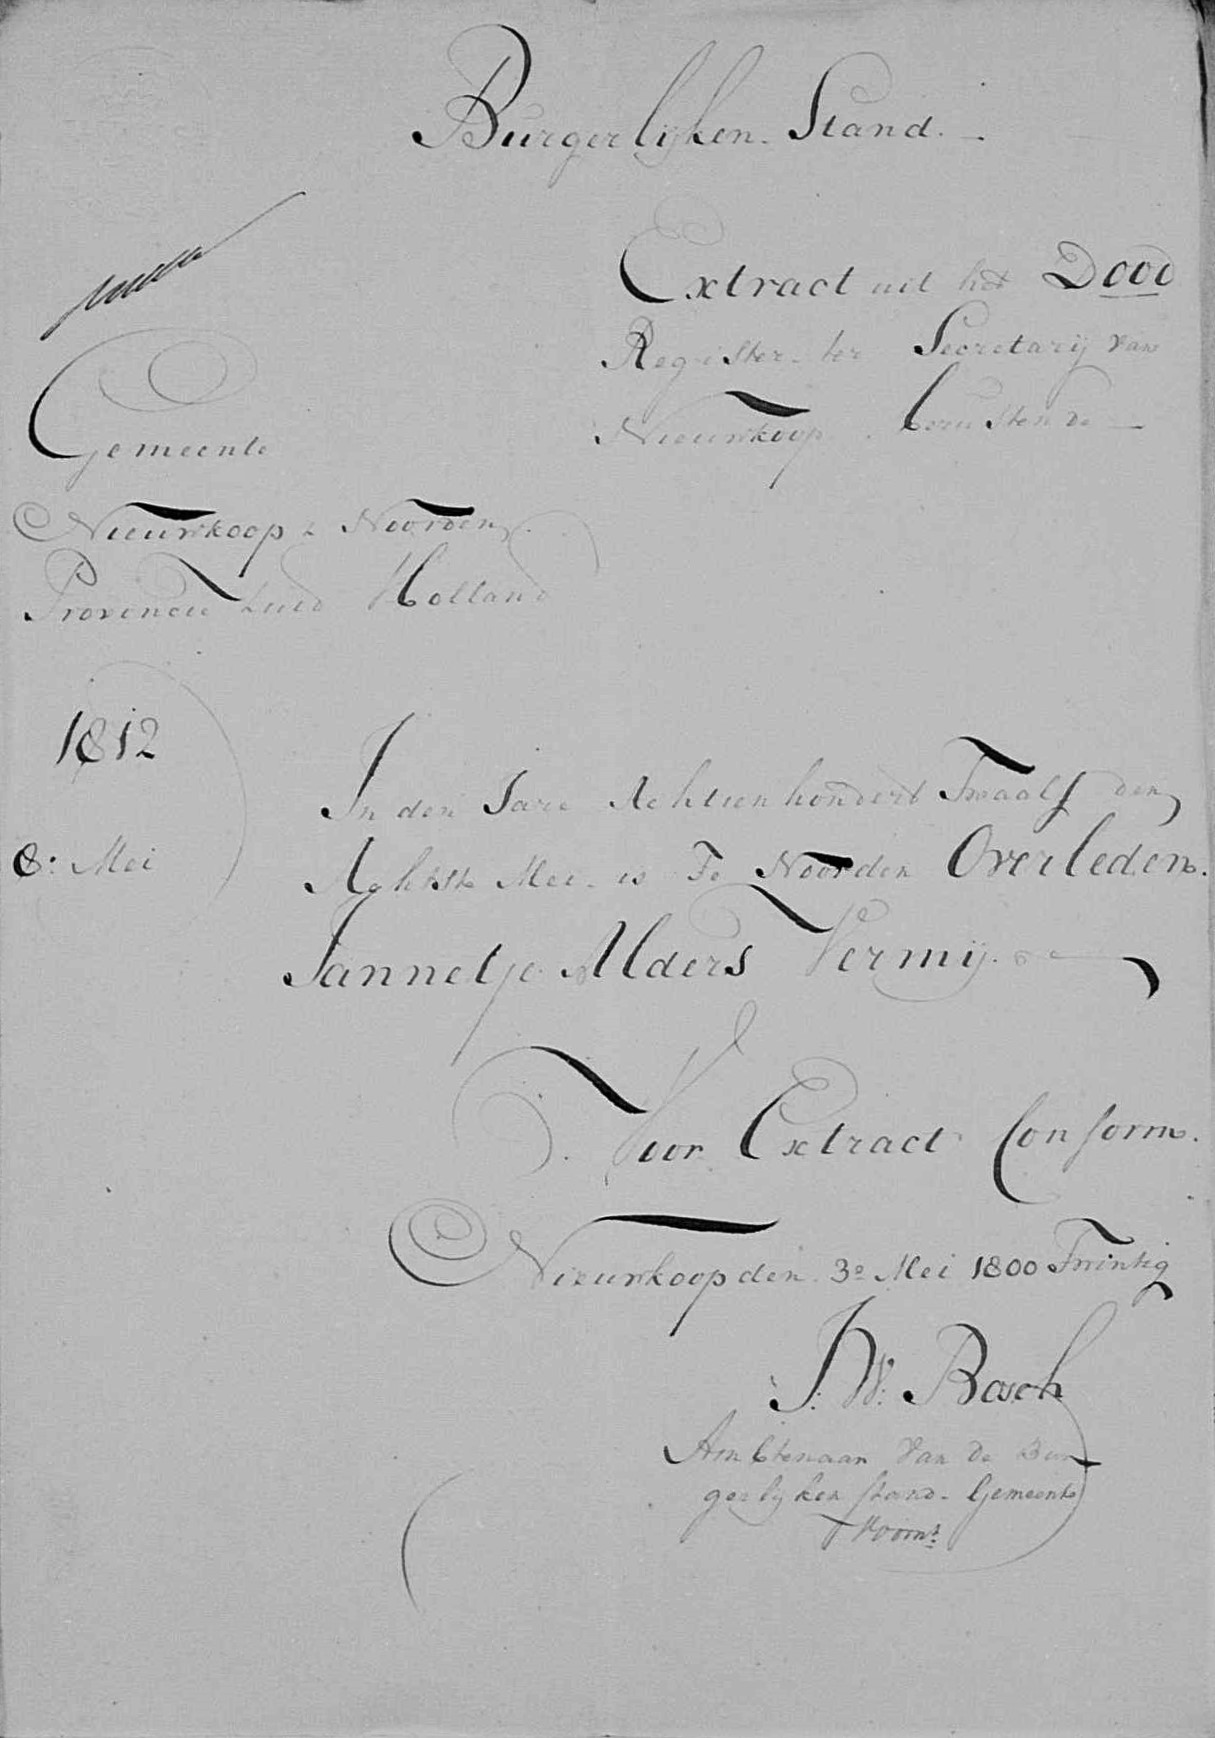 Burgerlijken Stand.
Extract uit het Dood
Register ter Secretarij van
Nieuwkoop berustende
Gemeente
Nieuwkoop & Noorden
Provincie Zuid Holland
1812
In den Jare Achtienhondert Twaalf den
8: Mei
Achtste Mei is Te Noorden Overleden
Jannetje Alders Vermij.
Voor Extract Conform.
Nieuwkoop den 3e Mei 1800 Twintig
J: W: Bosch
Ambtenaar van de Bur
gerlyken stand Gemeente
Voorn: